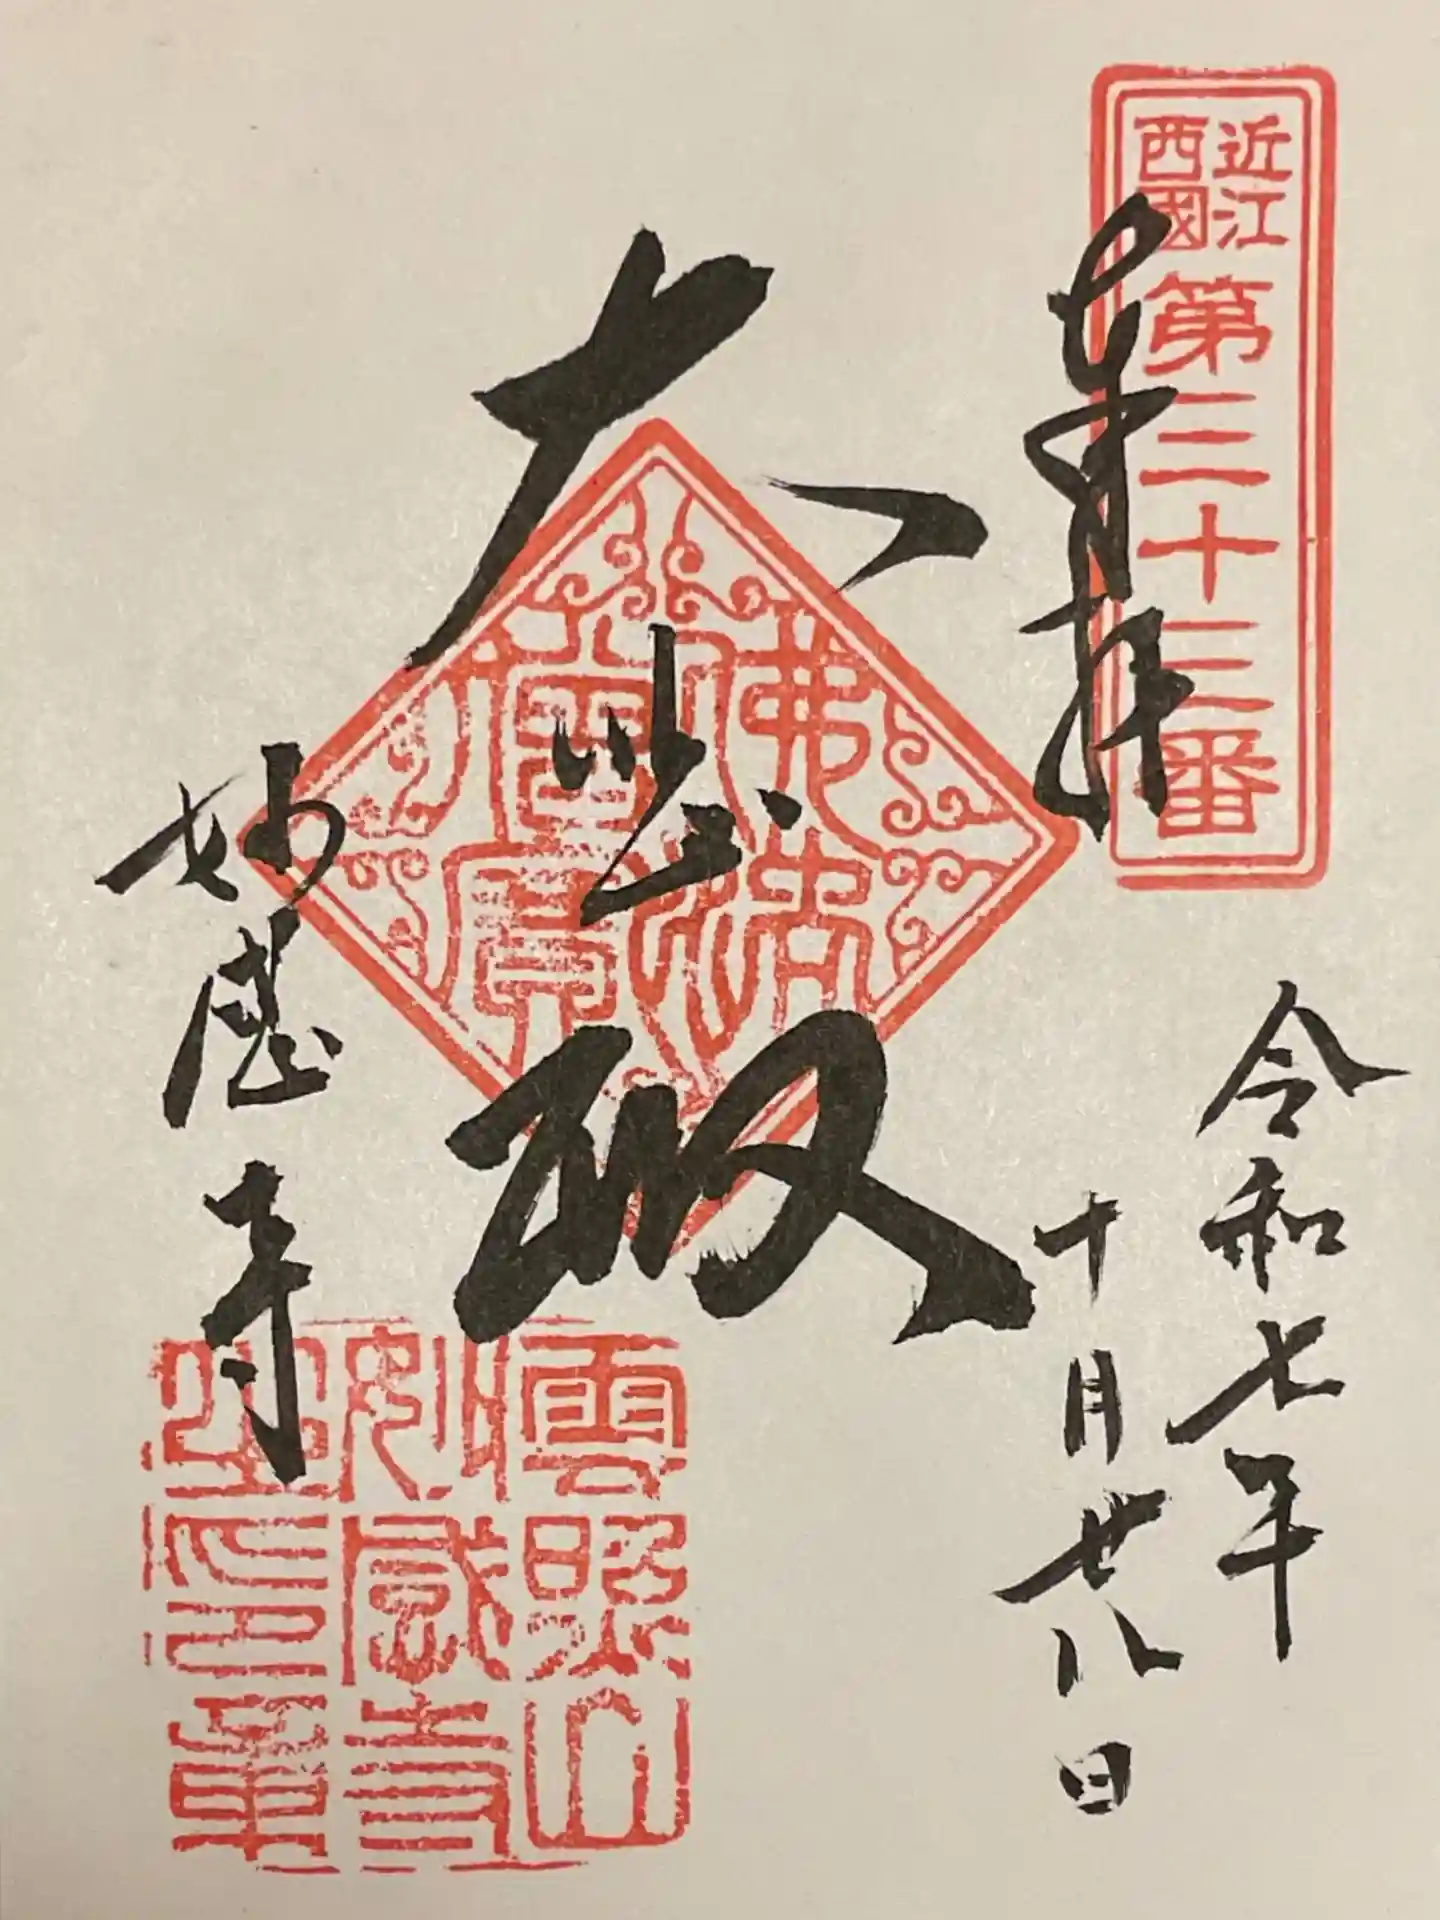 近江
西國
第三十三番
奉拜
令和七年
十月廿八日
大悲殿
佛法僧寶
妙感寺
雲照山
妙感寺
之印章